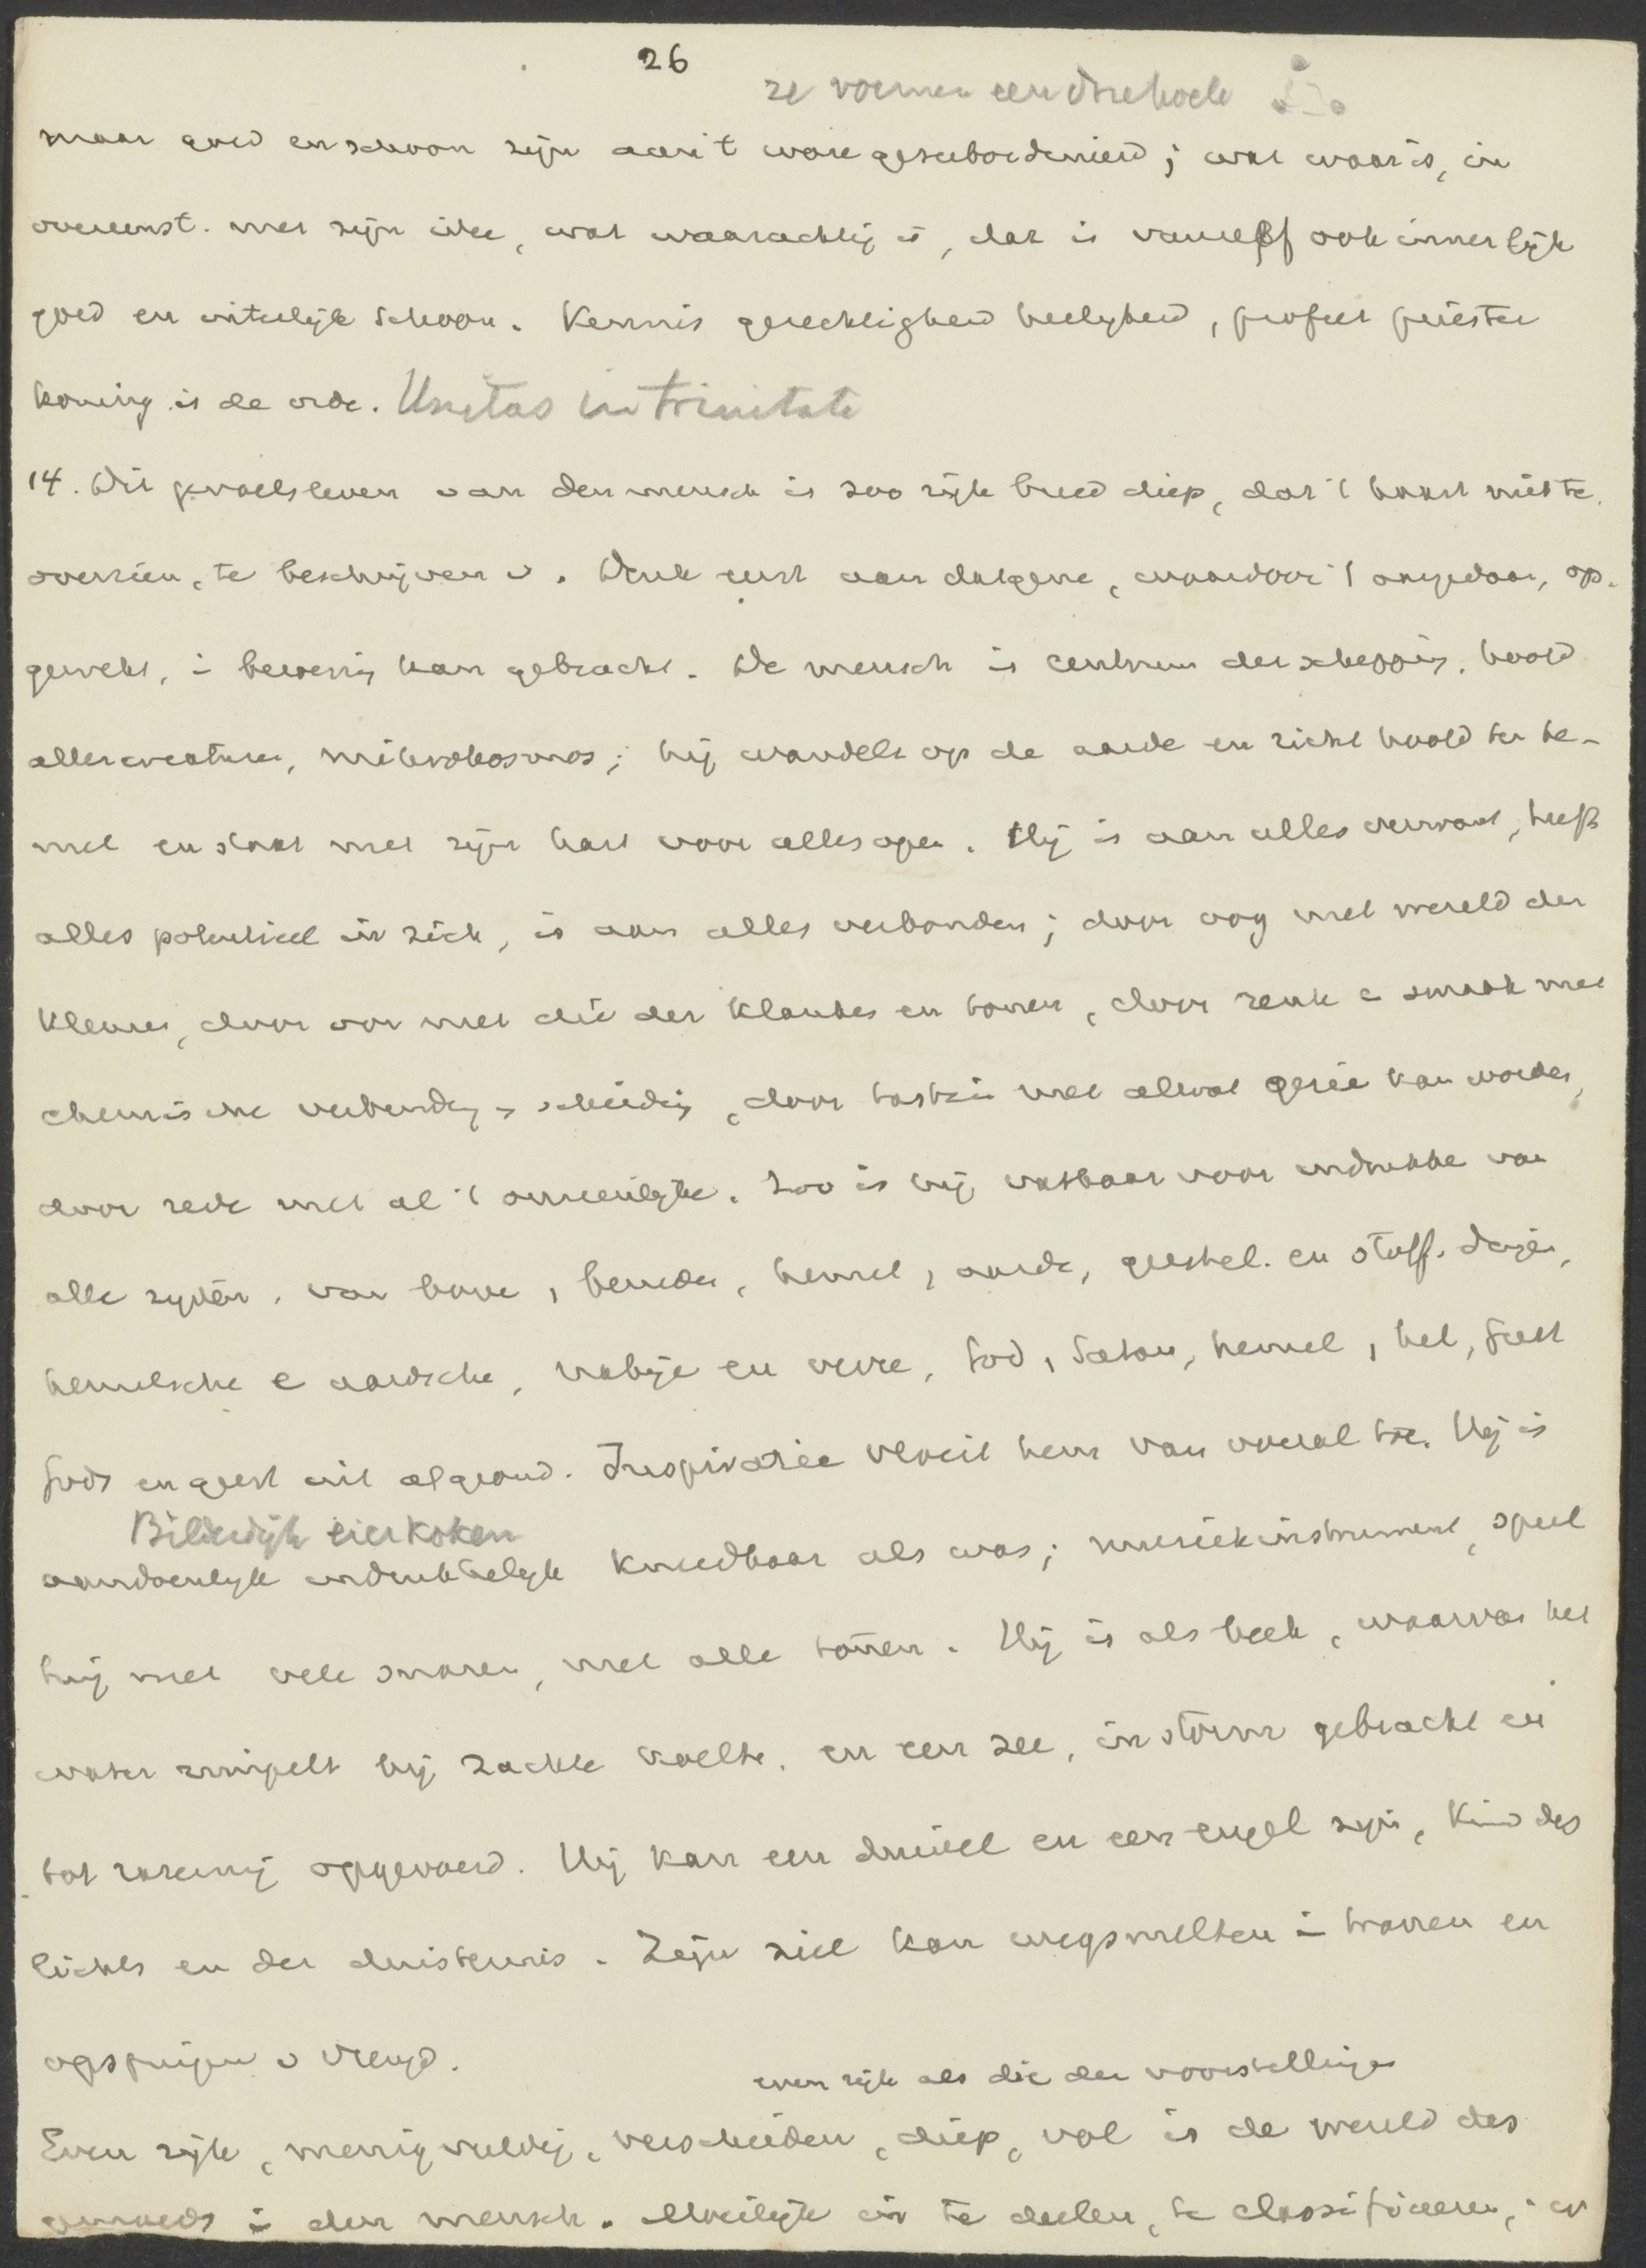 26
ze vormen een driehoek
maar goed en schoon zijn aan 't ware gesubordineerd; wat waar is, in
overeenst. met zijn idee, wat waarachtig is, dat is vanzelf ook innerlijk
goed en uiterlijk schoon. Kennis gerechtigheid heeligheid, profeet priester
koning is de orde. Unitas in trinitate
14. Dit gevoelsleven van den mensch is zoo rijk breed diep, dat 't haast niet te
overzien, te beschrijven is. Denk eerst aan datgene, waardoor 't aangedaan, op-
gewekt, i beweging kan gebracht. De mensch is centrum der schepping, hoofd
aller creaturen, mikrokosmos; hij wandelt op de aarde en richt hoofd ten he-
mel en staat met zijn hart voor alles open. Hij is aan alles verwant, heeft
alles potentieel in zich, is aan alles verbonden; door oog met wereld der
kleuren, door oor met die der klanken en tonen, door reuk e smaak met
chemische verbinding e scheiding, door tastzin met alwat gezie kan worden,
door rede met al 't onzienlijke. Zoo is hij vatbaar voor indrukke van
alle zijden, van bove, beneden, hemel, aarde, geestel. en stoff. dingen,
hemelsche e aardsche, nabije en verre, God, Satan, hemel, hel, Geest
Gods en geest uit afgrond. Inspiratie vloeit hem van overal toe. Hij is
Bilderdijk eierkoken
aandoenlijk indrukkelijk kneedbaar als was; muziekinstrument, speel
hij met vele snaren, met alle tonen. Hij is als beek, waarvan het
water rimpelt bij zachte koelte, en een zee, in storm gebracht en
tot razernij opgevoerd. Hij kan een duivel en een engel zijn, kind des
lichts en der duisternis. Zijn ziel kan wegsmelten i tranen en
opspringen v vreugd.
even rijk als die der voorstellingen
Even rijk, menigvuldig, verscheiden, diep, vol is de wereld des
gemoeds i den mensch. Moeilijk in te deelen, te classificeeren,